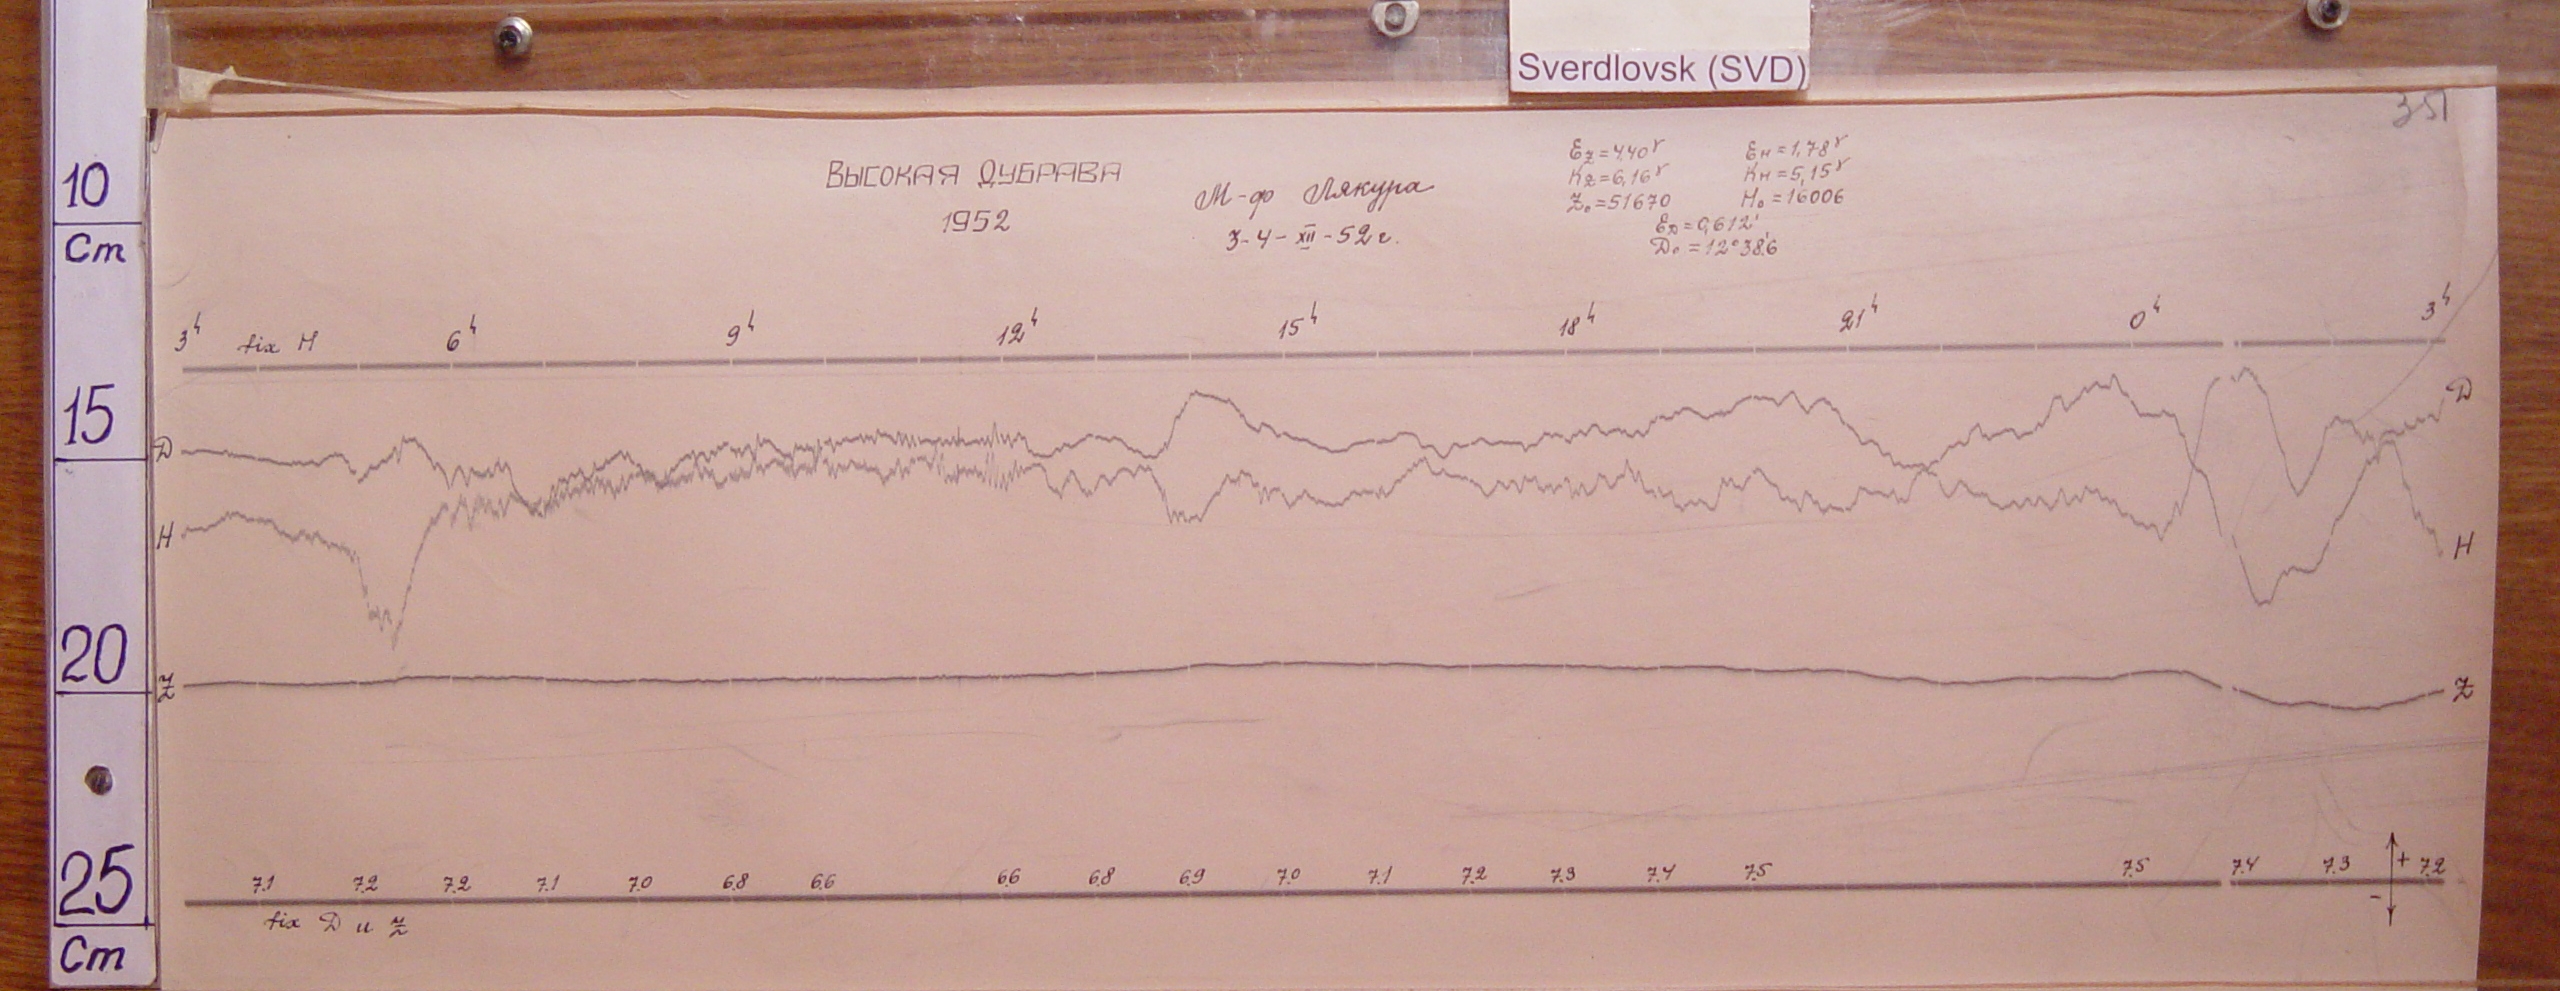 Sverdlovsk (SVD)
351
ВЫСОКАЯ ДУБРАВА
1952
М-ф Лякура
3-4-XII-52 г.
Ez=4,40γ Eн=1,78γ
Kz=6,16γ Kн=5,15γ
Z₀=51670 H₀=16006
ED=0,612'
D₀=12°38,6
10
Cm
3h fix H 6h 9h 12h 15h 18h 21h 0h 3h
15
D D
H H
20
Z Z
7.1 7.2 7.2 7.1 7.0 6.8 6.6 6.6 6.8 6.9 7.0 7.1 7.2 7.3 7.4 7.5 7.5 7.4 7.3 + 7.2
-
25
fix D и Z
Cm